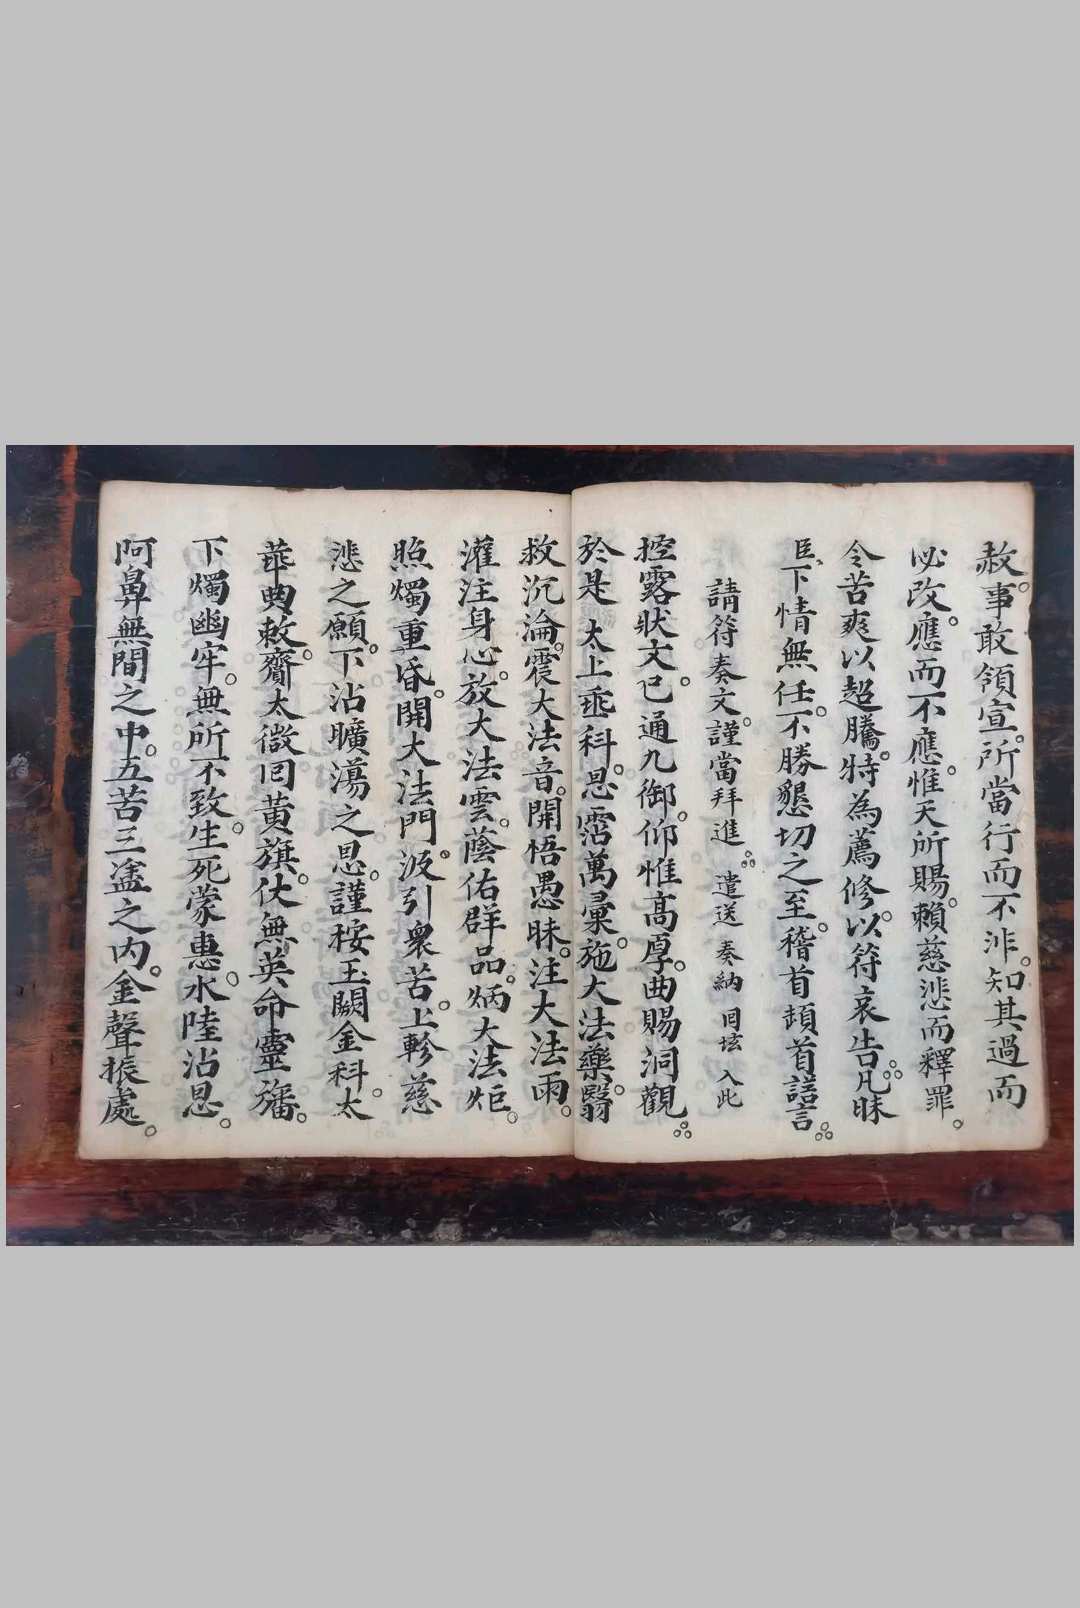 赦事敢領宣。所當行而不泮。知其過而
必改。應而不應。惟天所賜。賴慈悲而釋罪。
令苦爽以超騰。特為薦修。以符哀告。凡昧
臣下情無任。不勝懇切之至。稽首頓首謹言
請符奏文。謹當拜進 遣送 奏納 回壇 入此
控露狀文。已通九御。仰惟高厚。曲賜洞觀
於是 太上垂科。恩霑萬彙。施大法藥。醫
救沉淪。震大法音。開悟愚昧。注大法雨。
灌注身心。放大法雲。蔭佑群品。炳大法炬。
照燭重昏。開大法門。汲引衆苦。上軫慈
悲之願。下沾曠蕩之恩。謹桉玉闕金科。太
華典敕。齎太微囘黄旗。仗無英命靈旛。
下燭幽牢。無所不致。生死蒙惠。水陸沾恩。
阿鼻無間之中。五苦三塗之內。金聲振處。